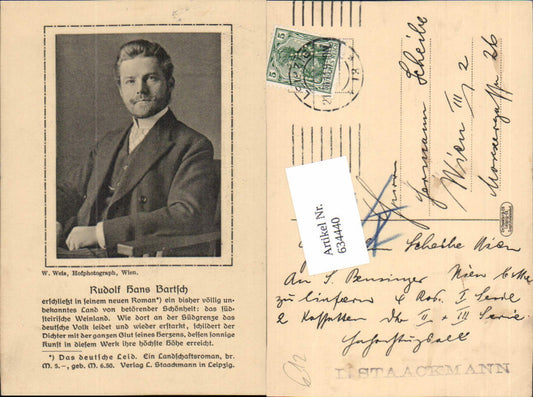 W. Weis, Hofphotograph, Wien.
Rudolf Hans Bartsch
erschließt in seinem neuen Roman*) ein bisher völlig un-
bekanntes Land von betörender Schönheit: das süd-
steirische Weinland. Wie dort an der Südgrenze das
deutsche Volk leidet und wieder erstarkt, schildert der
Dichter mit der ganzen Glut seines Herzens, dessen sonnige
Kunst in diesem Werk ihre höchste Höhe erreicht.
*) Das deutsche Leid. Ein Landschaftsroman, br.
M. 5.—, geb. M. 6.50. Verlag L. Staackmann in Leipzig.
5 5
Artikel Nr.
634440
Hermann Scheibe
Wien III/2
26
Scheibe Wien
An S. Bensinger Wien
zu liefern 4 I Serie
2 Kassetten II + III Serie.
L. STAACKMANN